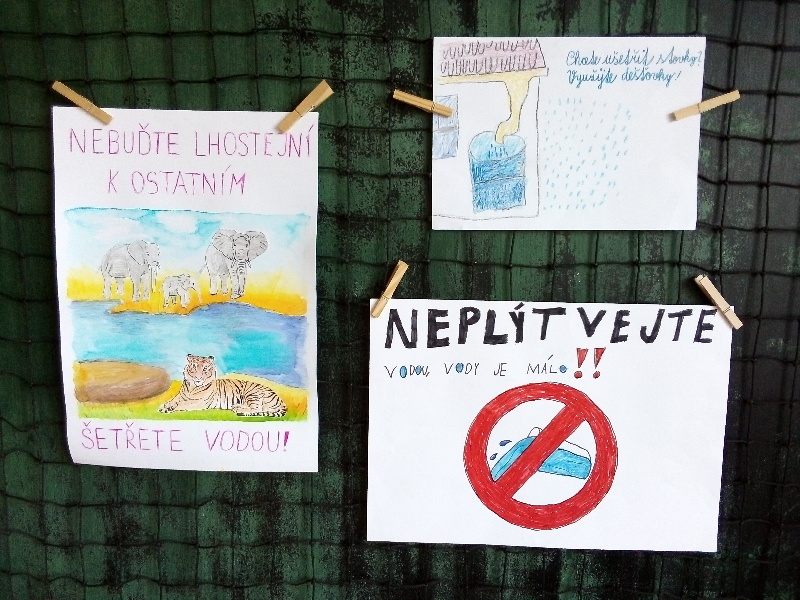 NEBUĎTE LHOSTEJNÍ
K OSTATNÍM
ŠETŘETE VODOU!
Chcete ušetřit stovky?
Využijte dešťovky!
NEPLÝTVEJTE
VODOU, VODY JE MÁLO!!